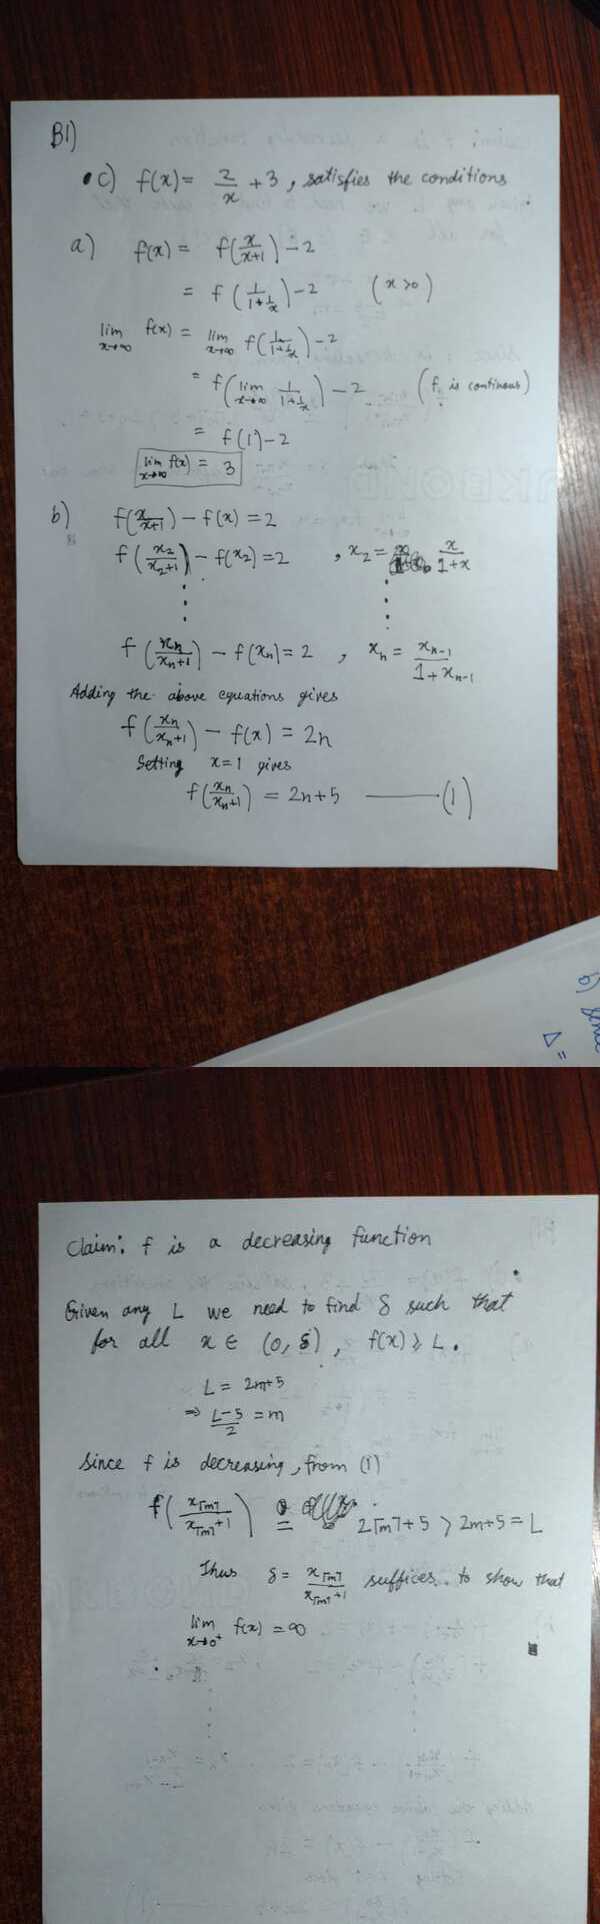 B1)
• c) f(x) = 2/x + 3, satisfies the conditions.
a) f(x) = f(x/(x+1)) - 2
= f(1/(1+1/x)) - 2 (x>0)
lim x→∞ f(x) = lim x→∞ f(1/(1+1/x)) - 2
= f(lim x→∞ 1/(1+1/x)) - 2 (f is continous)
= f(1) - 2
lim x→∞ f(x) = 3
b) f(x/(x+1)) - f(x) = 2
f(x₂/(x₂+1)) - f(x₂) = 2 , x₂ = x/(1+x)
⋮ ⋮
f(xₙ/(xₙ+1)) - f(xₙ) = 2 , xₙ = xₙ₋₁/(1+xₙ₋₁)
Adding the above equations gives
f(xₙ/(xₙ+1)) - f(x) = 2n
Setting x=1 gives
f(xₙ/(xₙ+1)) = 2n+5 ——— (1)
b) Since
Δ =
Claim: f is a decreasing function
Given any L we need to find δ such that
for all x ∈ (0, δ), f(x) ≥ L.
L = 2m+5
⇒ (L-5)/2 = m
Since f is decreasing, from (1)
f(x⌈m⌉/(x⌈m⌉+1)) = 2⌈m⌉+5 > 2m+5 = L
Thus δ = x⌈m⌉/(x⌈m⌉+1) suffices to show that
lim x→0⁺ f(x) = ∞